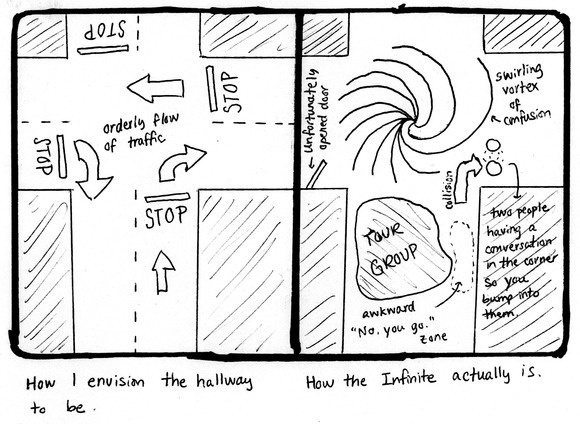 STOP
STOP
orderly flow
of traffic
STOP
STOP
Unfortunately
opened door
swirling
vortex
of
confusion
collision
TOUR
GROUP
two people
having a
conversation
in the corner
so you
bump into
them.
awkward
"No, you go."
zone
How I envision the hallway
to be.
How the Infinite actually is.